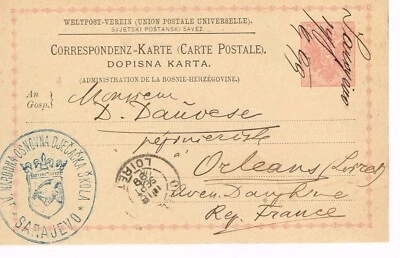 WELTPOST-VEREIN (UNION POSTALE UNIVERSELLE).
SVJETSKI POSTANSKI SAVEZ.
CORRESPONDENZ-KARTE (CARTE POSTALE).
DOPISNA KARTA.
(ADMINISTRATION DE LA BOSNIE-HERZÉGOVINE).
An
Gosp.
Monsieur
D. Dauvese
pépinieriste
Orleans (Loiret)
Aven. Dauphine
Rep. France
LOIRET
IV. NARODNA OSNOVNA DJEČAČKA ŠKOLA
SARAJEVO